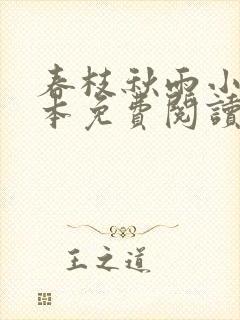 春枝秋雨小
本免費閱讀
王之道